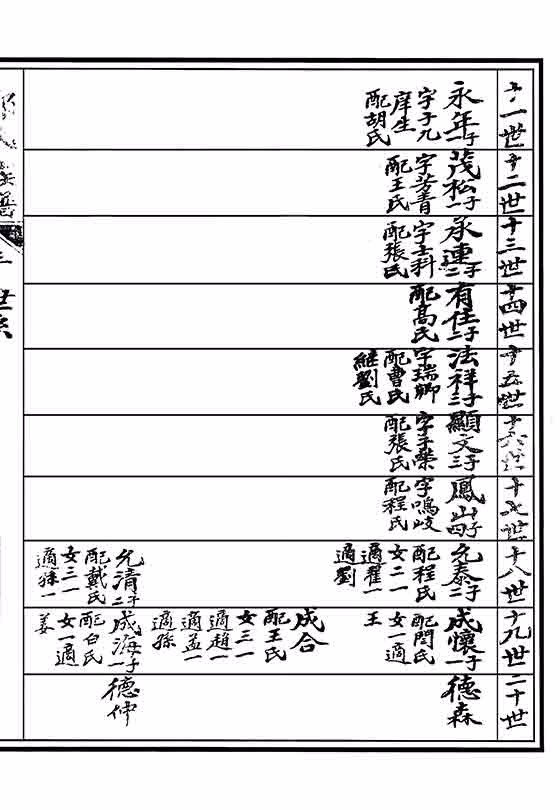 十一世
永年 子一
字子元
庠生
配胡氏
十二世
茂松 子一
字芳青
配王氏
十三世
承連 子二
字士科
配張氏
十四世
有任 子二
配高氏
十五世
法祥 子二
字瑞卿
配曹氏
繼劉氏
十六世
顯文 子三
字子榮
配張氏
十七世
鳳山 子四
字鳴岐
配程氏
十八世
允泰 子二
配程氏
女二一
適翟一
適劉
允清 子二
配戴氏
女三一
適孫一
十九世
成懷 子一
配閆氏
女一適
王
成合
配王氏
女三一
適趙一
適孟一
適孫
成海 子一
配白氏
女一適
姜
二十世
德森
德仲
世系